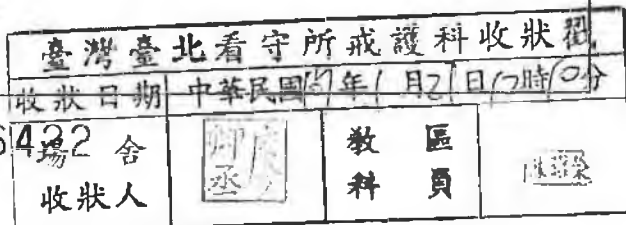 臺灣臺北看守所戒護科收狀戳
收狀日期 中華民國 年1月21日17時10分
6422
場舍收狀人 教區科員